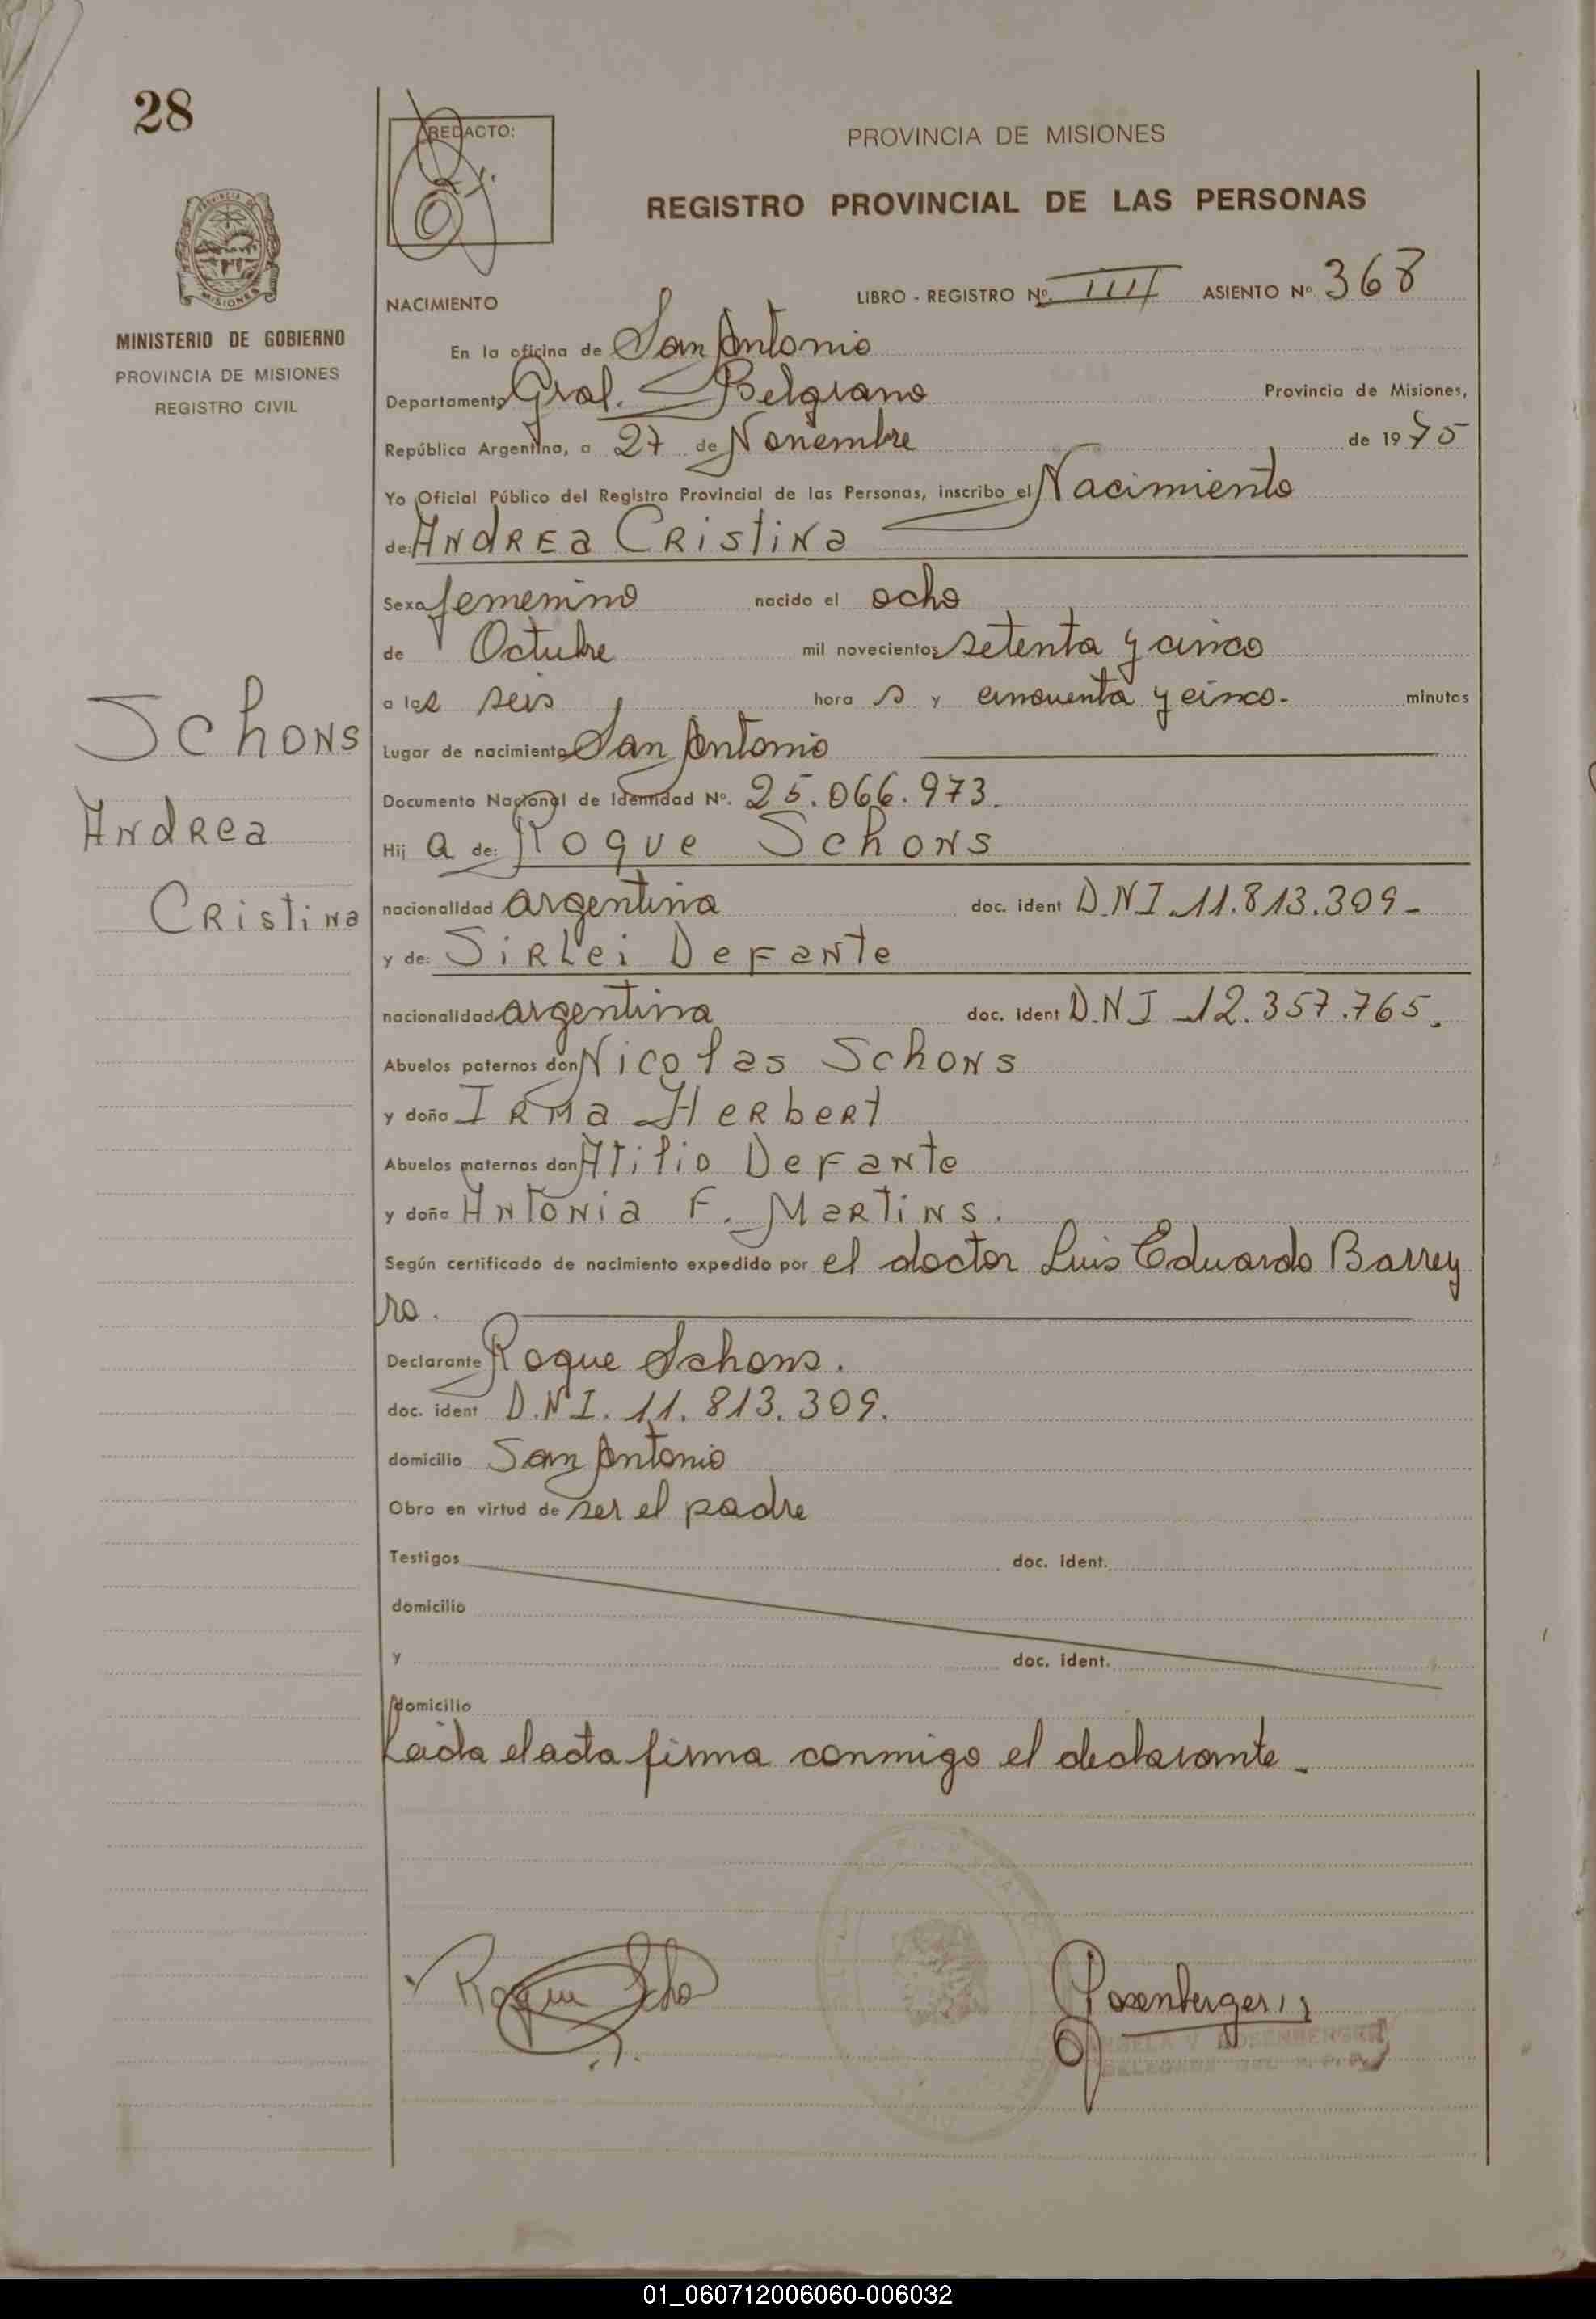 28
REDACTO:
PROVINCIA DE MISIONES
REGISTRO PROVINCIAL DE LAS PERSONAS
MISIONES
MINISTERIO DE GOBIERNO
PROVINCIA DE MISIONES
REGISTRO CIVIL
NACIMIENTO
LIBRO - REGISTRO Nº IIII ASIENTO Nº 368
En la oficina de San Antonio
Departamento Gral. Belgrano Provincia de Misiones,
República Argentina, a 27 de Noviembre de 1975
Yo Oficial Público del Registro Provincial de las Personas, inscribo el Nacimiento
de: Andrea Cristina
Sexo femenino nacido el ocho
de Octubre mil novecientos setenta y cinco
a las seis hora s y cincuenta y cinco- minutos
Lugar de nacimiento San Antonio
Documento Nacional de Identidad Nº. 25.066.973.
Hij a de: Roque Schons
nacionalidad argentina doc. ident D.N.I. 11.813.309-
y de: Sirlei Defante
nacionalidad argentina doc. ident D.N.I 12.357.765.
Abuelos paternos don Nicolas Schons
y doña Irma Herbert
Abuelos maternos don Atilio Defante
y doña Antonia F. Martins.
Según certificado de nacimiento expedido por el doctor Luis Eduardo Barrey
ro.
Declarante Roque Schons.
doc. ident D.N.I. 11.813.309.
domicilio San Antonio
Obra en virtud de ser el padre
Testigos doc. ident.
domicilio
y doc. ident.
domicilio
Leida el acta firma conmigo el declarante.
Schons
Andrea
Cristina
Roque Scho
Rosenberger
V ROSENBERGER
DELEGADA DEL R.P.P.
01_060712006060-006032